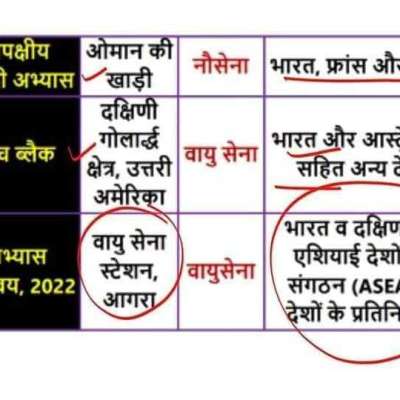 पक्षीय
ी अभ्यास
ओमान की
खाड़ी
नौसेना
भारत, फ्रांस और
व ब्लैक
दक्षिणी
गोलार्द्ध
क्षेत्र, उत्तरी
अमेरिका
वायु सेना
भारत और आस्ट्रे
सहित अन्य दे
भ्यास
वय, 2022
वायु सेना
स्टेशन,
आगरा
वायुसेना
भारत व दक्षिण
एशियाई देशों
संगठन (ASEA
देशों के प्रतिनि